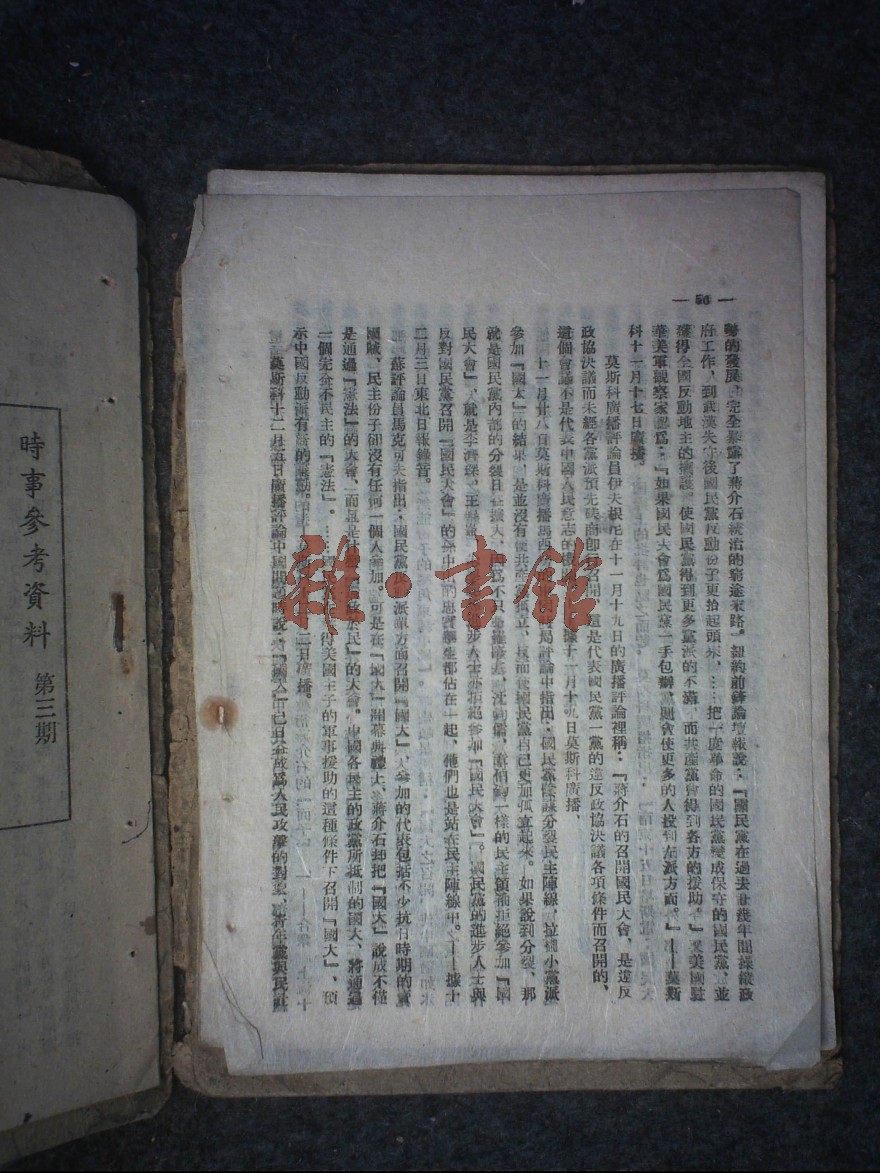 — 56 —
勢的發展，完全暴露了蔣介石統治的窮途末路。紐約前鋒論壇報說：『國民黨在過去廿幾年間操縱政
府工作，到武漢失守後國民黨反動份子更抬起頭來，……把一度革命的國民黨變成保守的國民黨，並
獲得全國反動地主的擁護。使國民黨得到更多黨派的不滿，而共產黨會得到各方的援助。』又美國駐
華美軍觀察家認爲：『如果國民大會爲國民黨一手包辦，則會使更多的人投到左派方面。』——莫斯
科十一月十七日廣播。
莫斯科廣播評論員伊夫根尼在十一月十九日的廣播評論裡稱：『蔣介石的召開國民大會，是違反
政協決議而未經各黨派預先磋商即行召開，這是代表國民黨一黨的違反政協決議各項條件而召開的，
這個會議不是代表中國人民意志的機 據十一月十九日莫斯科廣播、
十一月廿八日莫斯科廣播馬西 局評論中指出：國民黨陰謀分裂民主陣線，拉攏小黨派
參加『國大』的結果，是並沒有使共產黨孤立，反而使國民黨自己更加孤立起來。如果說到分裂，那
就是國民黨內部的分裂日在擴大，因爲不只 沈鈞儒、章伯鈞一樣的民主領袖拒絕參加『國
民大會』，就是李濟琛、王 步人士亦拒絕參加『國民大會』。國民黨的進步人士與
反對國民黨召開『國民大會』的 中國的思 學生都佔在一起，他們也是站在民主陣線中。——據十
二月三日東北日報錄音。
蘇評論員馬克可夫指出：國民黨反 派單方面召開『國大』，參加的代表包括不少抗日時期的賣
國賊，民主份子卻沒有任何一個人參加。可是在『國大』開幕典禮上，蔣介石却把『國大』說成不僅
是通過『憲法』的大會，而且是 政於民』的大會。中國各民主的政黨所抵制的國大，將通過
一個完全不民主的『憲法』。…… 得美國主子的軍事援助的這種條件下召開『國大』，預
示中國反動派有新的 動。 二月 廣播。
莫斯科十二月五日廣播評論中國問題時說：『國大』已日益成爲人民攻擊的對象，青年黨與民社黨
雅·書館
時事參考資料 第三期